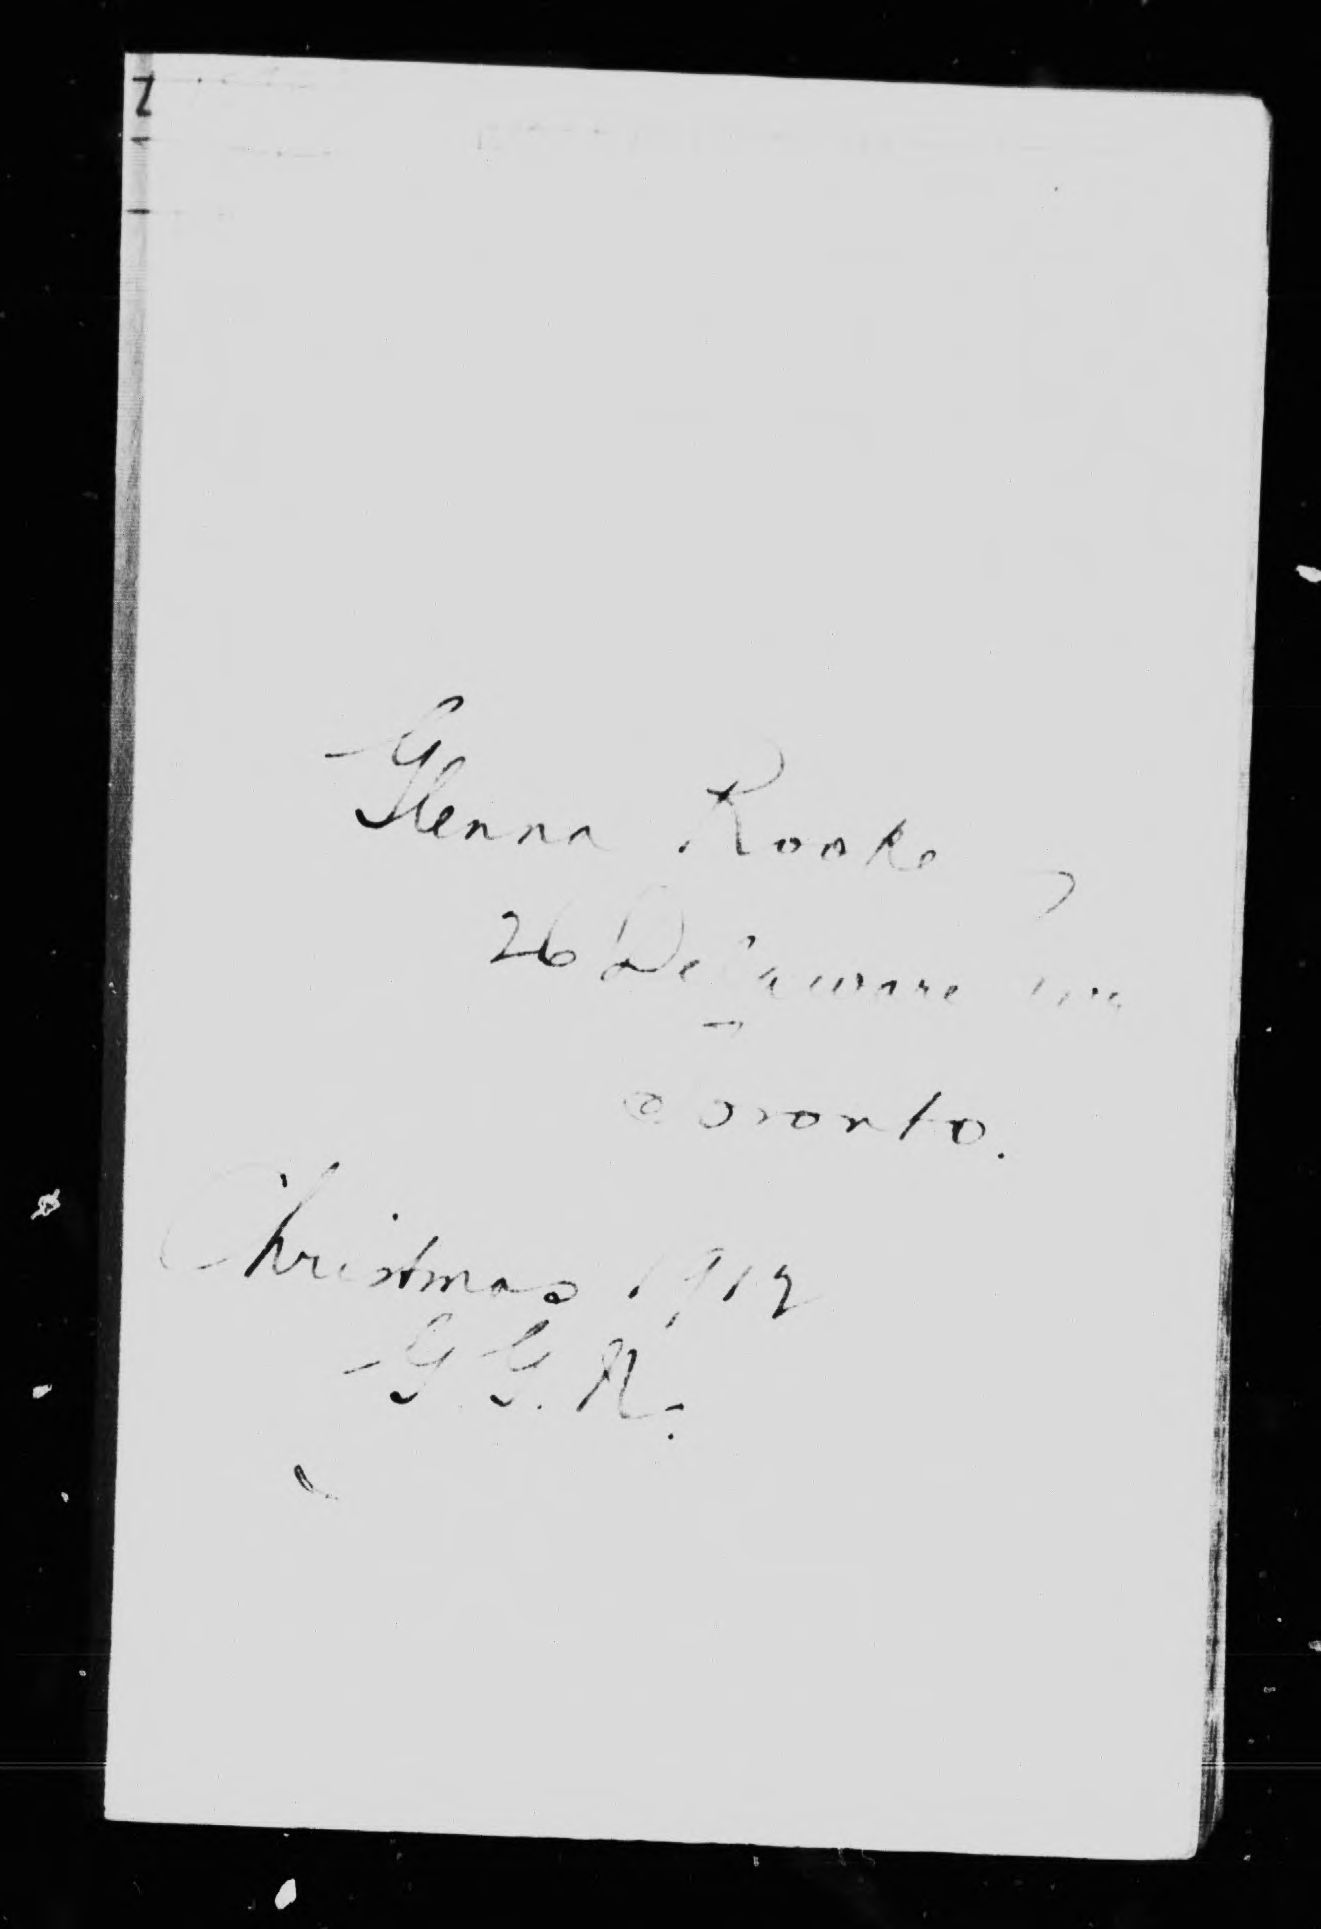 Glenna Rooke,
26 Delaware Ave
Toronto.
Christmas 1912
G. G. R.